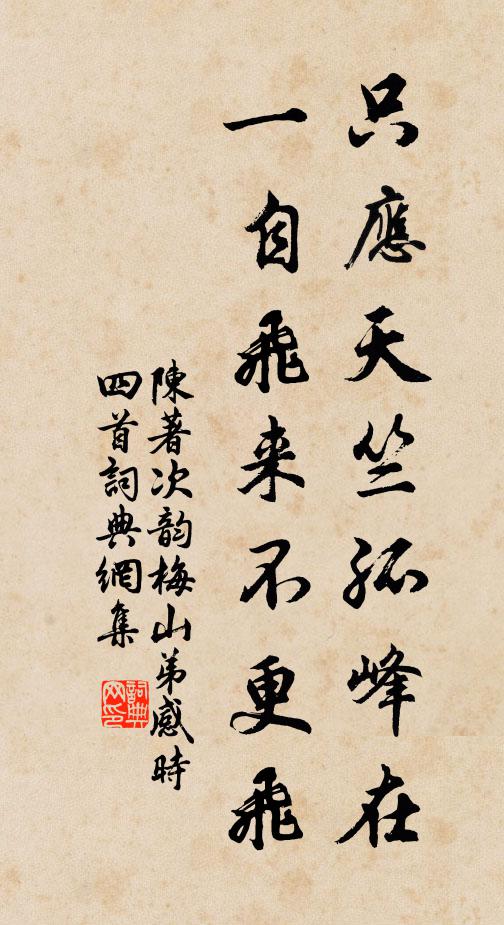 只應天竺孤峰在
一自飛来不更飛
陳著次韵梅山弟感時
四首詞典網集
詞典
网印